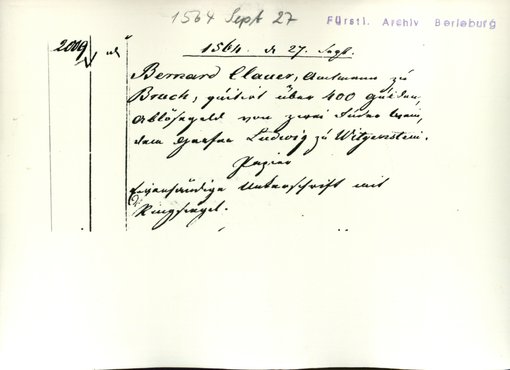 1564 Sept 27
Fürstl. Archiv Berleburg
2009
1564. d. 27. Sept.
Bernard Clauer, Amtmann zu
Bruch, quitirt über 400 gulden,
Ablösegeld von zwei Fuder Wein,
dem Grafen Ludwig zu Witgenstein.
Papier
Eigenhändige Unterschrift mit
Ringsiegel.